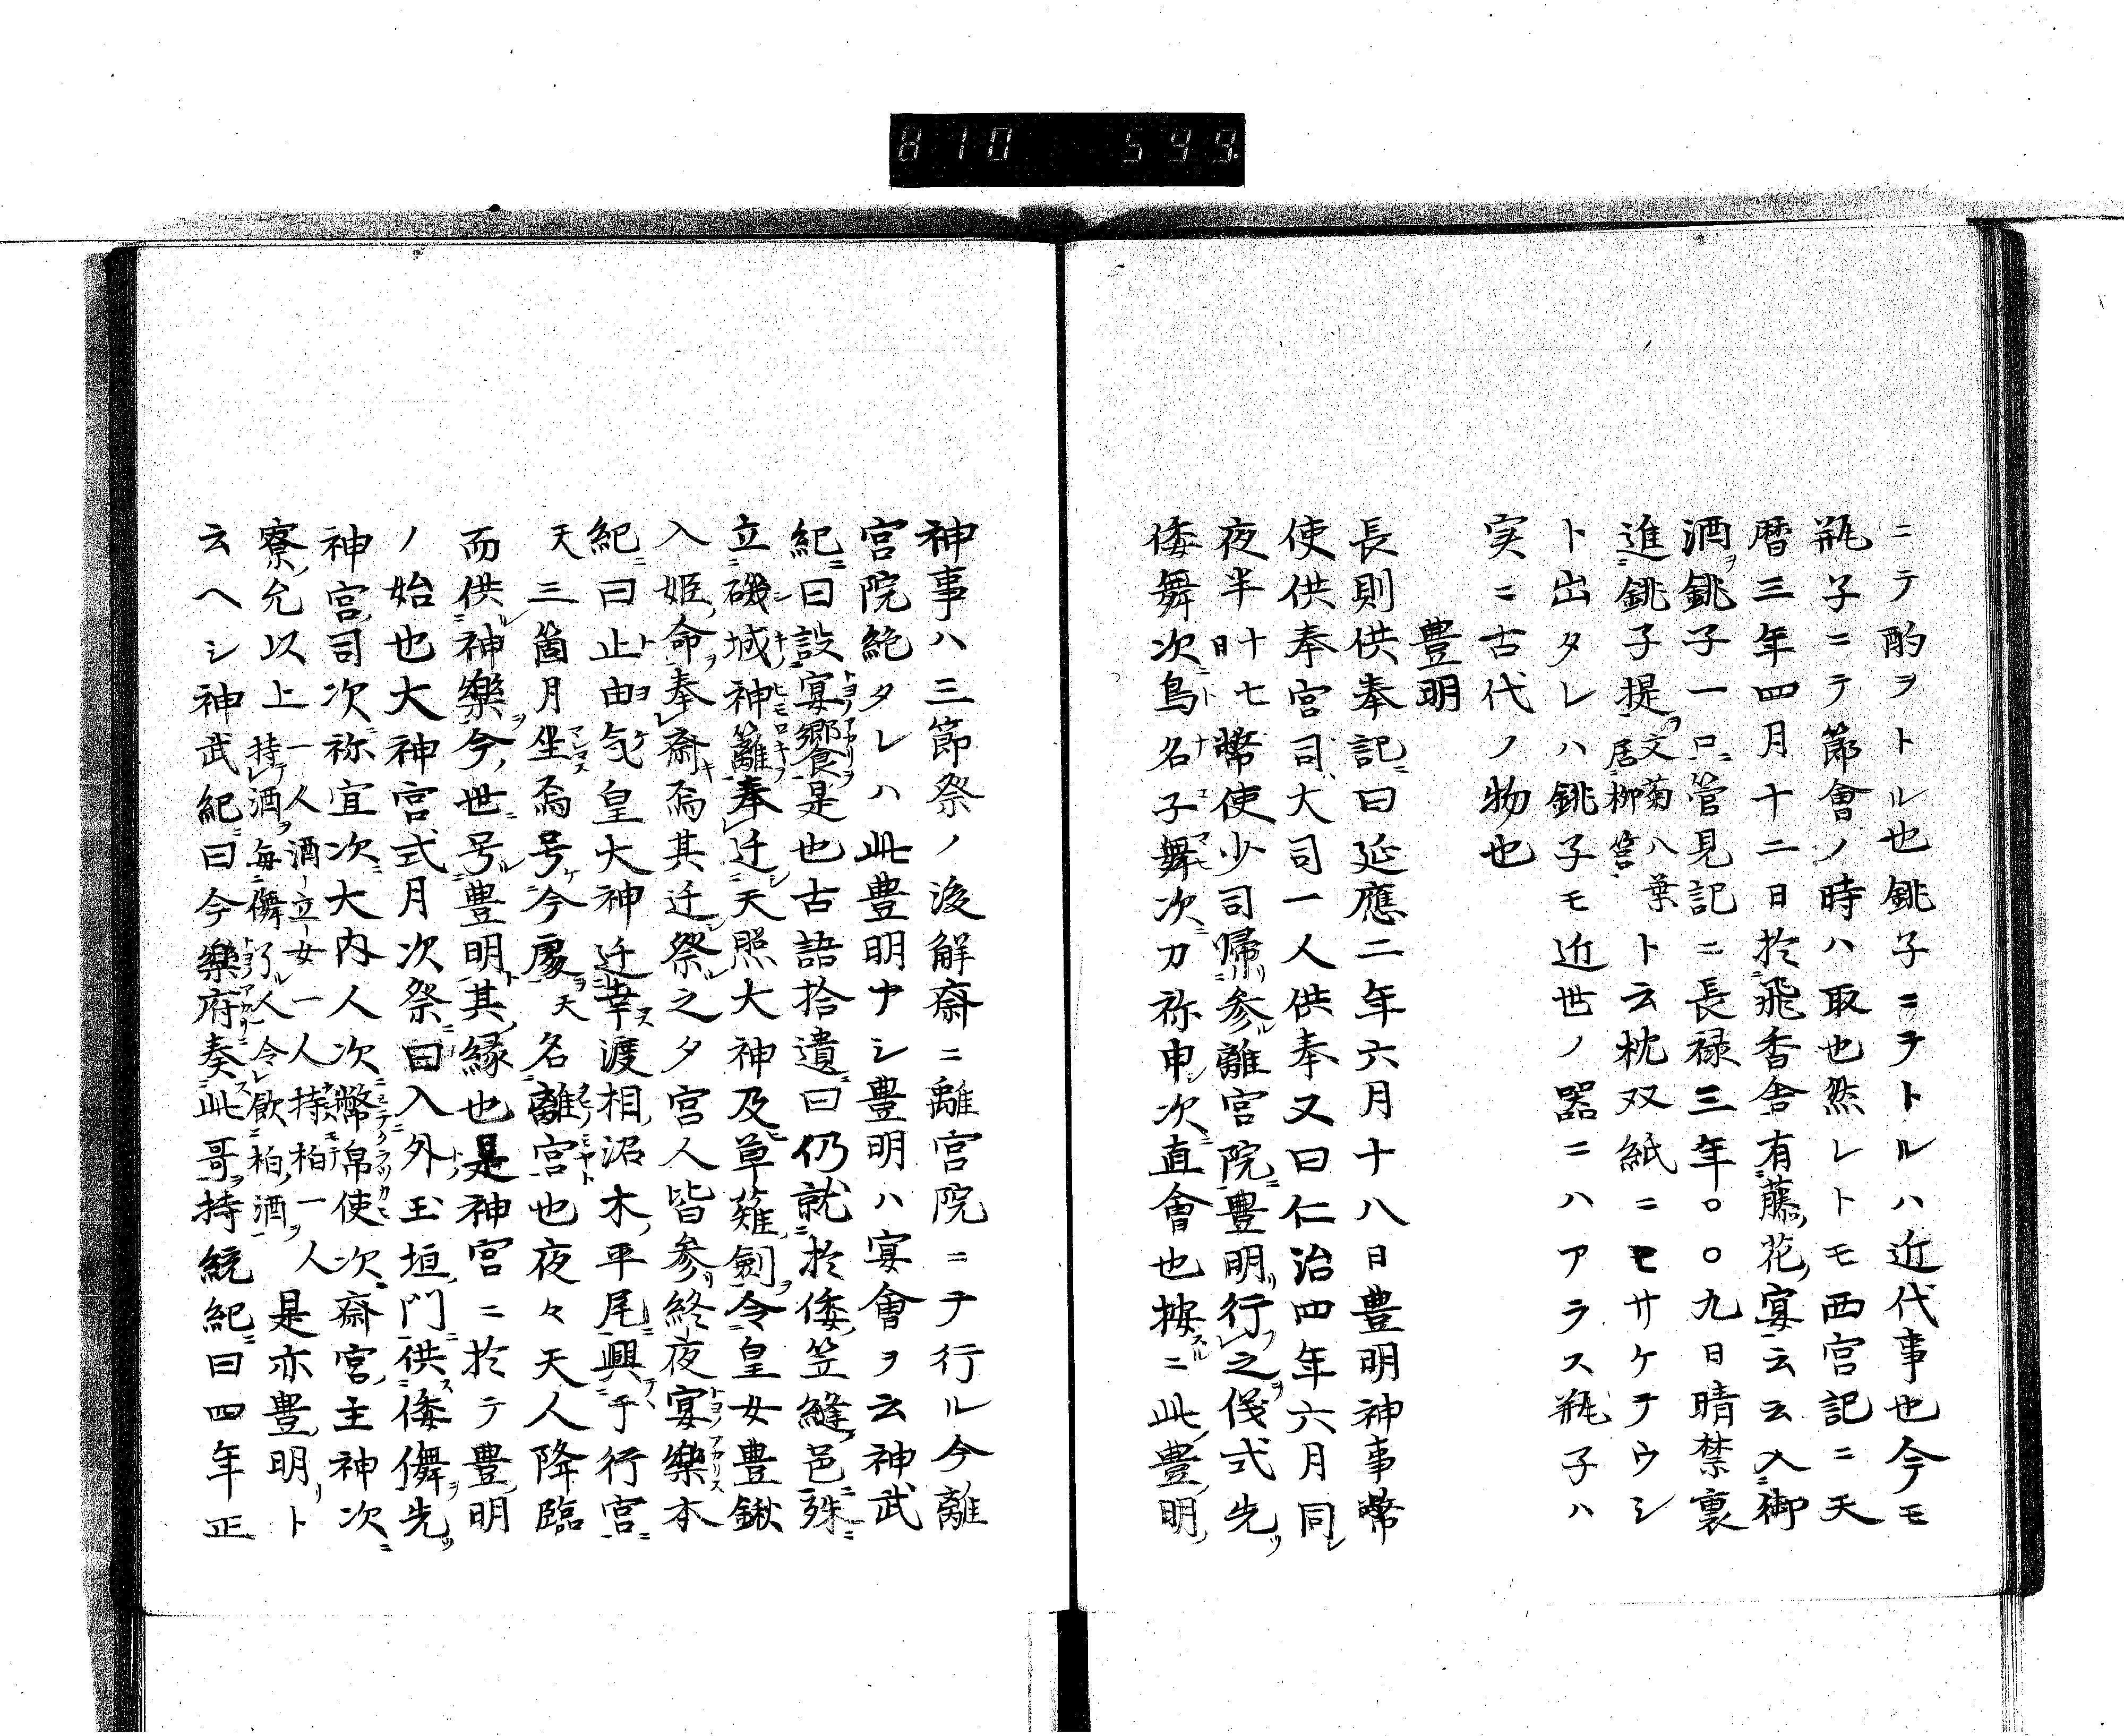 810 599.
ニテ酌ヲトル也銚子ニヲトルハ近代事也今モ
瓶子ニテ節會ノ時ハ取也然レトモ西宮記ニ天
暦三年四月十二日於飛香舎有藤花宴云云入御
酒銚子一口管見記ニ長禄三年○○九日晴禁裏
進銚子提文菊八葉居柳筥ト云枕双紙ニモサケテウシ
ト出タレハ銚子モ近世ノ器ニハアラス瓶子ハ
実ニ古代ノ物也
豊明
長則供奉記曰延應二年六月十八日豊明神事幣
使供奉宮司大司一人供奉又曰仁治四年六月同
夜半十七日幣使少司帰参離宮院豊明行之儀式先
倭舞次鳥名子舞次刀祢申次直會也按ニ此豊明
神事ハ三節祭ノ後解齋ニ離宮院ニテ行ル今離
宮院絶タレハ此豊明ナシ豊明ハ宴會ヲ云神武
紀曰設宴饗是也古語拾遺曰仍就於倭笠縫邑殊
立磯城神籬奉迁天照大神及草薙劔令皇女豊鍬
入姫命奉齋焉其迁祭之夕宮人皆参終夜宴樂本
紀曰止由気皇大神迁幸渡相沼木平尾興于行宮
天三箇月坐焉号今處天名離宮也夜々天人降臨
而供神樂今世号豊明其縁也是神宮ニ於テ豊明
ノ始也大神宮式月次祭曰入外玉垣門供倭儛先
神宮司次祢宜次大内人次幣帛使次齋宮主神次
寮允以上一人酒立女一人持柏一人持酒毎儛了人令飲柏酒是亦豊明ト
云ヘシ神武紀曰今樂府奏此哥持統紀曰四年正